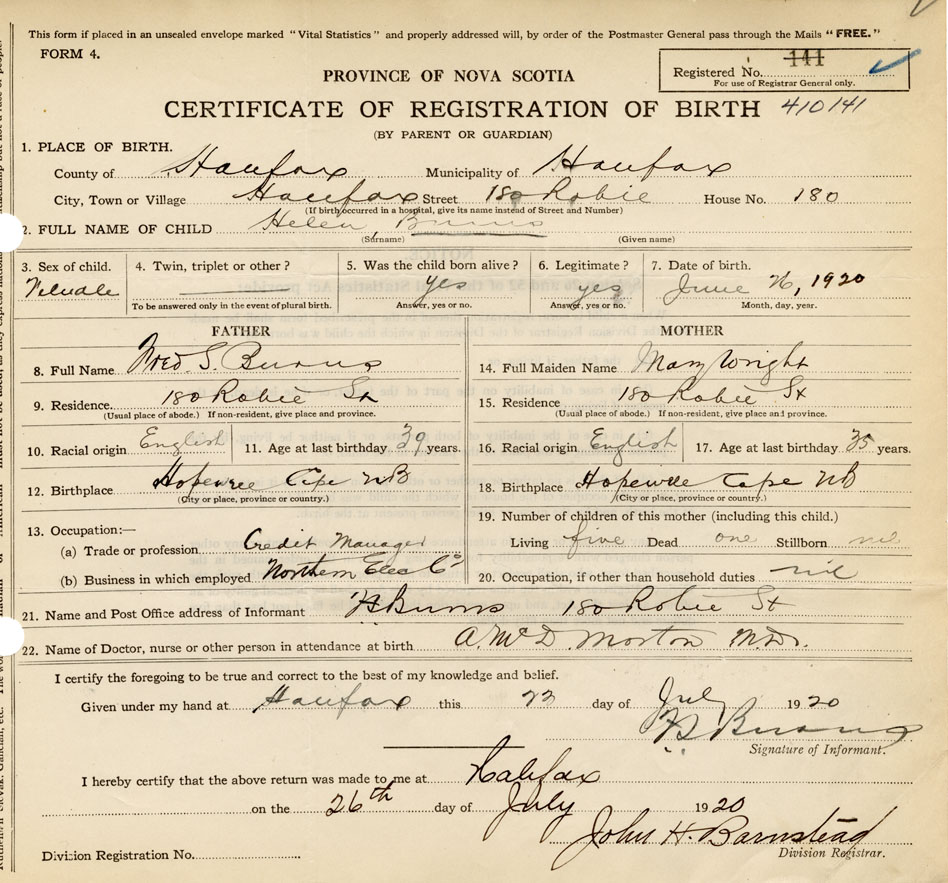 This form if placed in an unsealed envelope marked "Vital Statistics" and properly addressed will, by order of the Postmaster General pass through the Mails "FREE."
FORM 4.
141
Registered No.
For use of Registrar General only.
PROVINCE OF NOVA SCOTIA
CERTIFICATE OF REGISTRATION OF BIRTH 410141
(BY PARENT OR GUARDIAN)
1. PLACE OF BIRTH.
County of Halifax Municipality of Halifax
City, Town or Village Halifax Street 180 Robie House No. 180
(If birth occurred in a hospital, give its name instead of Street and Number)
2. FULL NAME OF CHILD Helen Burns
(Surname) (Given name)
3. Sex of child. 4. Twin, triplet or other? 5. Was the child born alive? 6. Legitimate? 7. Date of birth.
Female yes yes June 26, 1920
To be answered only in the event of plural birth. Answer, yes or no. Answer, yes or no. Month, day, year.
FATHER MOTHER
8. Full Name Fred. S. Burns 14. Full Maiden Name Mary Wright
9. Residence 180 Robie St 15. Residence 180 Robie St
(Usual place of abode.) If non-resident, give place and province. (Usual place of abode.) If non-resident, give place and province.
10. Racial origin English 11. Age at last birthday 39 years. 16. Racial origin English 17. Age at last birthday 35 years.
12. Birthplace Hopewell Cape NB 18. Birthplace Hopewell Cape NB
(City or place, province or country.) (City or place, province or country.)
13. Occupation:— 19. Number of children of this mother (including this child.)
(a) Trade or profession Credit Manager Living five Dead one Stillborn nil
(b) Business in which employed Northern Elec Co 20. Occupation, if other than household duties nil
21. Name and Post Office address of Informant FS Burns 180 Robie St
22. Name of Doctor, nurse or other person in attendance at birth A. McD. Morton M.D.
I certify the foregoing to be true and correct to the best of my knowledge and belief.
Given under my hand at Halifax this day of July 1920
FS Burns
Signature of Informant.
I hereby certify that the above return was made to me at Halifax
on the 26th day of July 1920
John H. Barnstead
Division Registration No. Division Registrar.